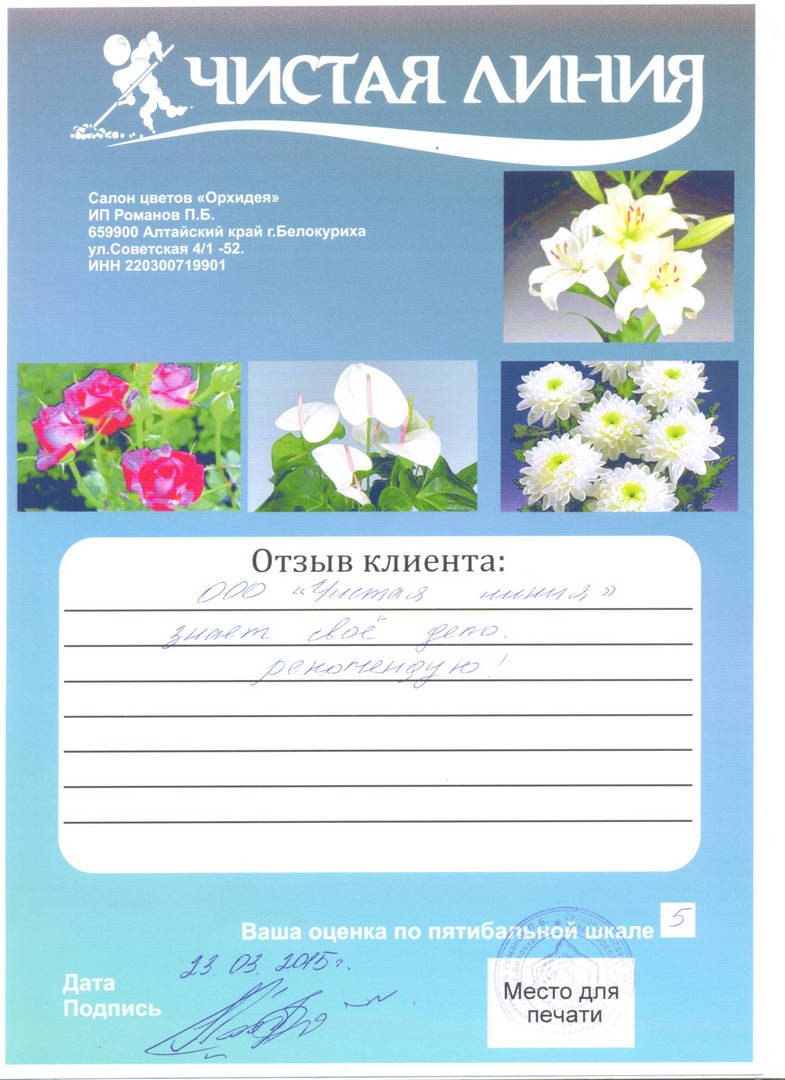 ЧИСТАЯ ЛИНИЯ
Салон цветов «Орхидея»
ИП Романов П.Б.
659900 Алтайский край г.Белокуриха
ул.Советская 4/1 -52.
ИНН 220300719901
Отзыв клиента:
ООО "Чистая линия"
знает своё дело.
рекомендую!
Ваша оценка по пятибальной шкале 5
Дата 23.03.2015г.
Подпись
Место для
печати